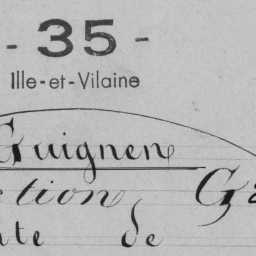 - 35 -
Ille-et-Vilaine
Guignen
ction, G
te de